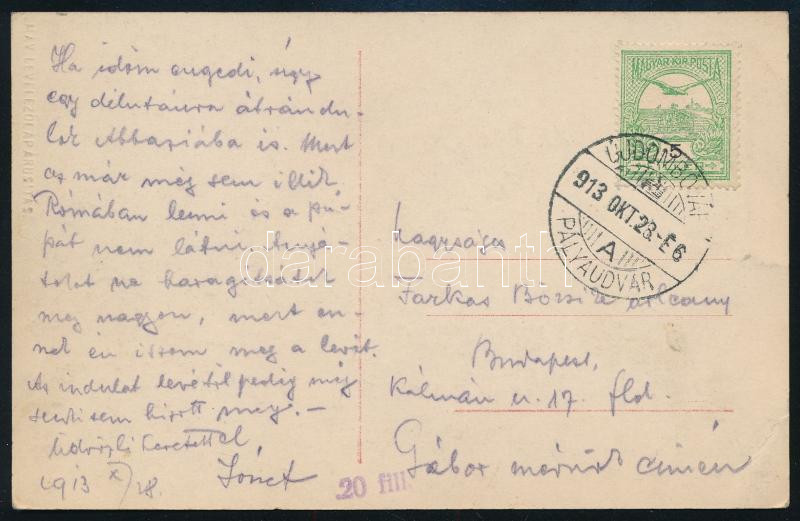 MÁV LEVELEZŐLAPÁRUSÍTÁS
Ha időm engedi, úgy
egy délutánra átrándu-
lok Abbaziába is. Mert
az már még sem illik
Rómában lenni és a pá-
pát nem látni.
ne haragítsátok
meg nagyon, mert en-
nek én iszom meg a levét.
Az indulat levétől pedig még
senki sem hízott meg. —
Üdvözli szeretettel
1913 X/28.
MAGYAR KIR. POSTA
5
ÚJDOMBÓVÁR
913 OKT. 28. - E 6
A
PÁLYAUDVAR
Nagyságos
Farkas Bözsike úrleány
Budapest,
Kálmán u. 17. fld.
Gábor mérnök címén
20 fill.
darabanth